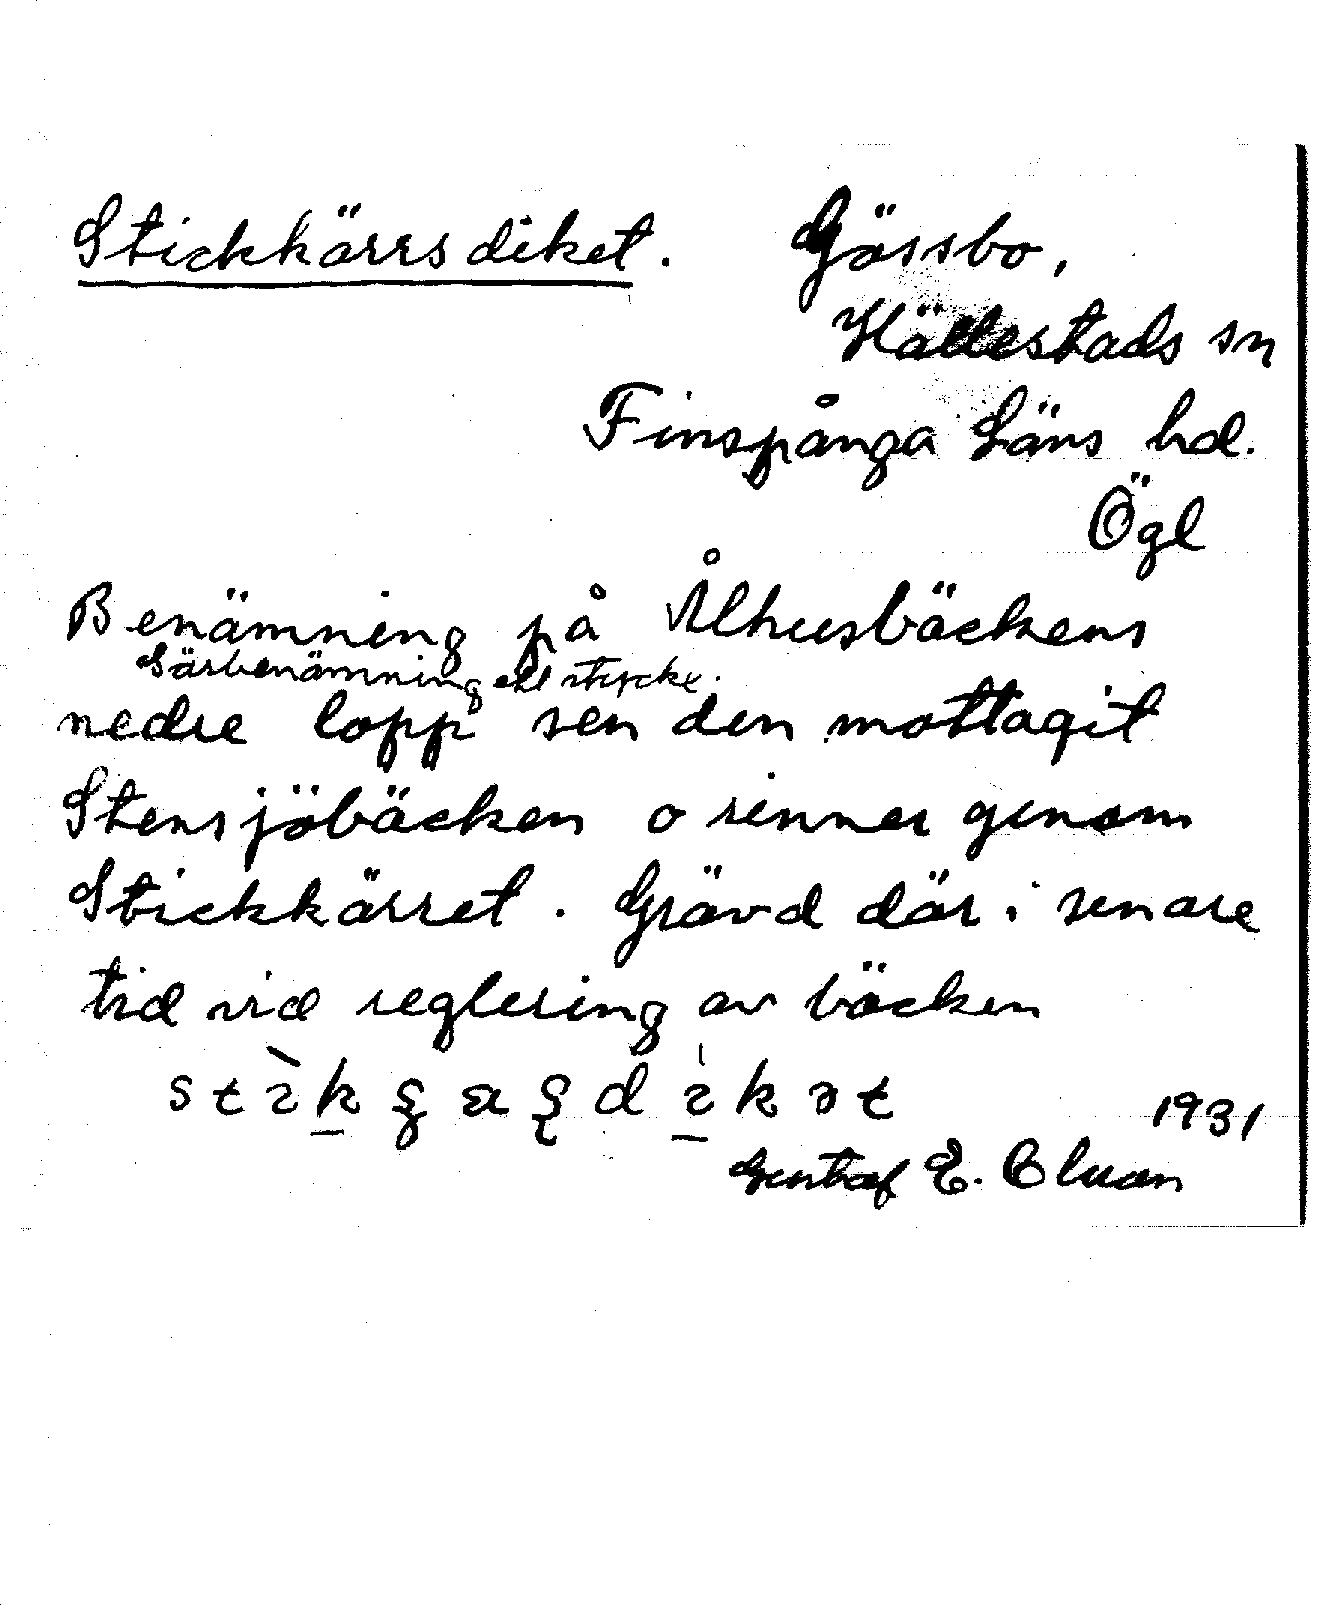 Stickkärrsdiket. Gössbo,
Hällestads sn
Finspånga Läns hd.
Ögl
Benämning på Ålhusbäckens
Särbenämning ett stycke.
nedre lopp sen den mottagit
Stensjöbäcken o rinner genom
Stickkärret. Grävd där i senare
tid vid reglering av bäcken
1931
Gustaf E.